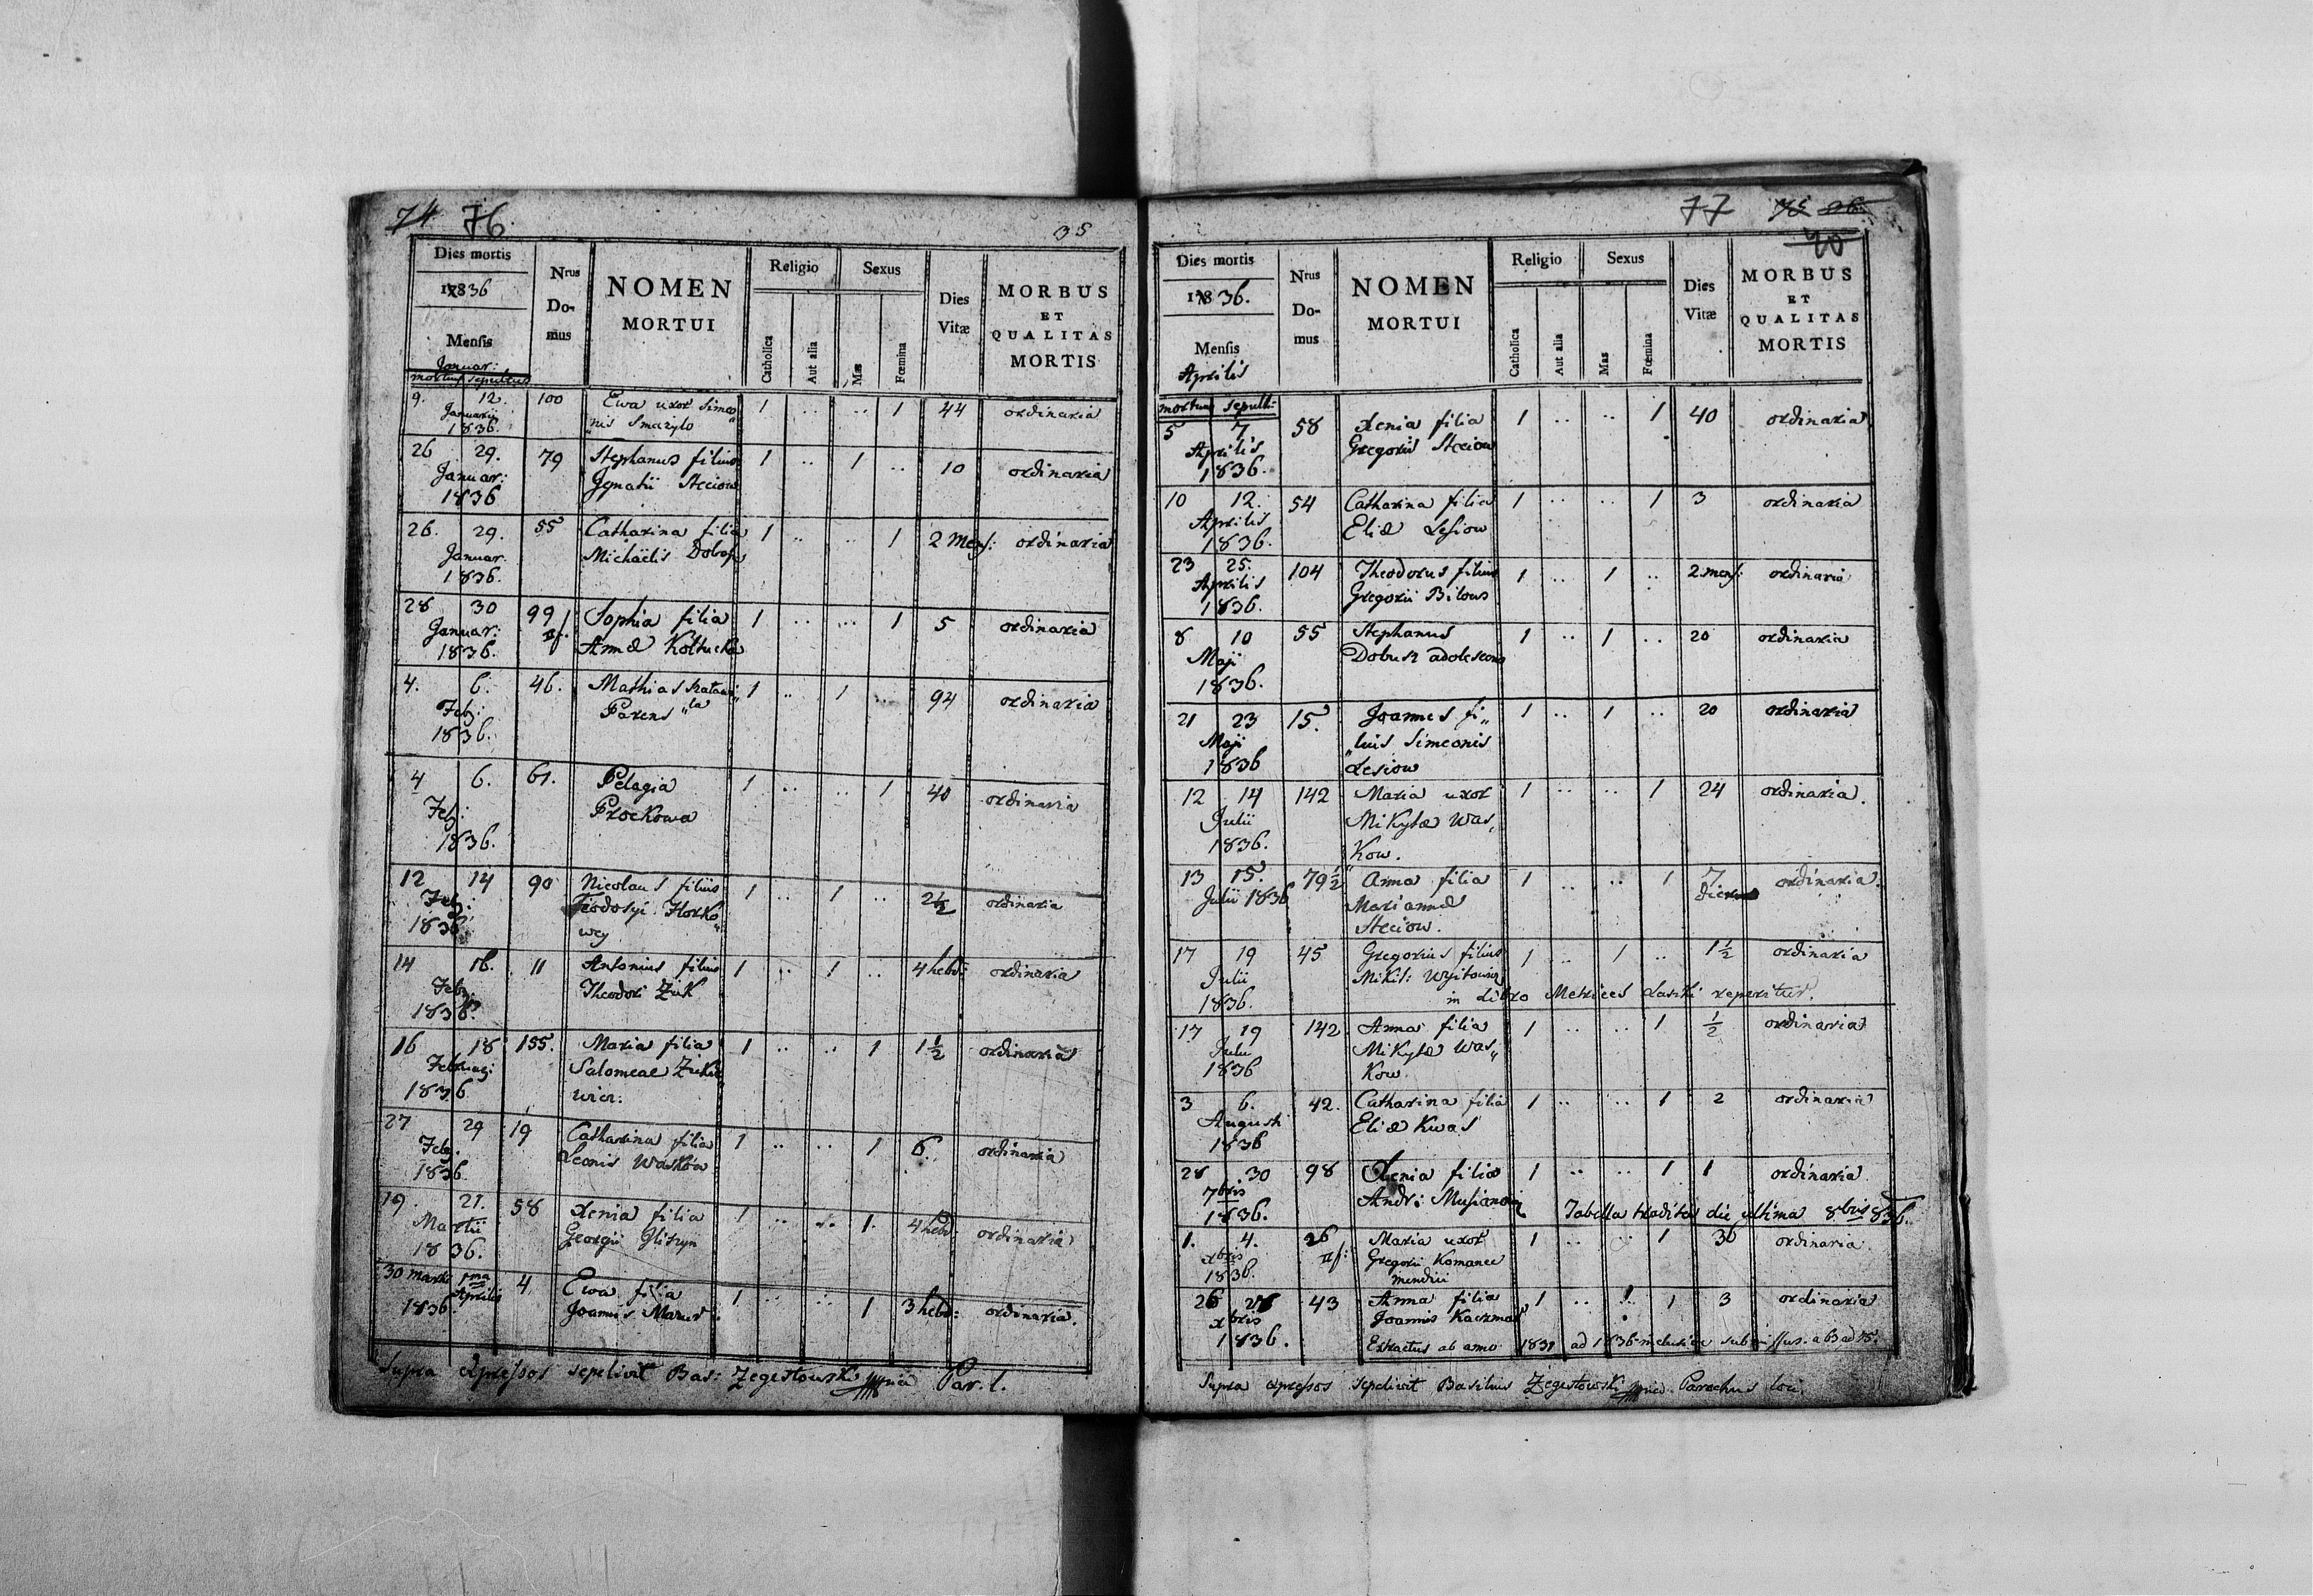 74 76. 35
Dies mortis
1836
Mensis
Januar:
mortuus sepultus
Nrus Domus
NOMEN
MORTUI
Religio
Catholica
Aut alia
Sexus
Mas
Fœmina
Dies
Vitæ
MORBUS
ET
QUALITAS
MORTIS
9. 12. 100 Ewa uxor Simeo„ 1 .. .. 1 44 ordinaria
Januarii „nis Smaryło
1836.
26 29. 79 Stephanus filius 1 .. 1 .. 10 ordinaria
Januar: Ignatii Steciow
1836
26. 29. 55 Catharina filia 1 .. .. 1 2 Mens: ordinaria
Januar. Michaëlis Dobosz
1836.
28 30 99 Sophia filia 1 .. .. 1 5 ordinaria
Januar: Annæ
1836.
4. 6. 46. Mathias 1 .. 1 .. 94 ordinaria
Feb: Parens
1836.
4 6. 61. Pelagia 1 .. .. 1 40 ordinaria
Feb: Prockowa
1836.
12 14 90 Nicolaus filius 1 .. 1 .. 2½ ordinaria
Feb: Teodosyi Horko„
1836 wey
14 16. 11 Antonius filius 1 .. 1 .. 4 hebd: ordinaria
Feb. Theodori Zuk
1836.
16 18 155. Maria filia 1 .. .. 1 1½ ordinaria
Februarij Salomeae
1836 wicz.
27 29 19 Catharina filia 1 .. .. 1 6. ordinaria
Feb. Leonis Waskow
1836.
19. 21. 58 Xenia filia 1 .. .. 1. 4 hebd: ordinaria
Martii Georgii Gliszyn
1836.
30 Martii 1ma 4 Ewa filia 1 .. .. 1 3 hebd: ordinaria.
Aprilis Joannis
1836
Supra expressos sepelivit Bas: Żegestowski mp Par. l.
77 75
40
Dies mortis
1836.
Mensis
Aprilis
mortuus sepult:
Nrus Domus
NOMEN
MORTUI
Religio
Catholica
Aut alia
Sexus
Mas
Fœmina
Dies
Vitæ
MORBUS
ET
QUALITAS
MORTIS
5 7 58 Xenia filia 1 .. .. 1 40 ordinaria
Aprilis Gregorii Steciow
1836.
10 12. 54 Catharina filia 1 .. .. 1 3 ordinaria
Aprilis Eliæ Lesiow
1836.
23 25. 104 Theodorus filius 1 .. 1 .. 2 mens: ordinaria
Aprilis Gregorii Biłous
1836.
8 10 55 Stephanus 1 .. 1 .. 20 ordinaria
Maji Dobusz adolescens
1836.
21 23 15. Joannes fi„ 1 .. 1 .. 20 ordinaria
Maji „lius Simeonis
1836 Lesiow
12 14 142 Maria uxor 1 .. .. 1 24 ordinaria.
Julii Mikytæ Was„
1836. Kow.
13 15. 79½ Anna filia 1 .. .. 1 7 ordinaria.
Julii 1836 Mariannæ dierum
Steciow.
17 19 45 Gregorius filius 1 .. 1 .. 1½ ordinaria
Julii Mikit: Wojtowicz
1836. in Libro Metrices Laski reperitur.
17 19 142 Anna filia 1 .. .. 1 ½ ordinaria
Julii Mikytæ Was„
1836 Kow.
3 6. 42. Catharina filia 1 .. .. 1 2 ordinaria
Augusti Eliæ Kwas
1836
28 30 98 Xenia filia 1 .. .. 1 1 ordinaria
7bris Andr:
1836. Tabella tradita die ultima 8bris 836.
1. 4. 26 Maria uxor 1 .. .. 1 36 ordinaria.
xbris Gregorii Komanec
1836. mendici
26 28 43 Anna filia 1 .. 1 3 ordinaria
xbris Joannis Kaczmar
1836. Extractus ab anno 1831 ad 1836 inclusive submissus. a 63 ad 75.
Supra expressos sepelivit Basilius Żegestowski mp Parochus loci.